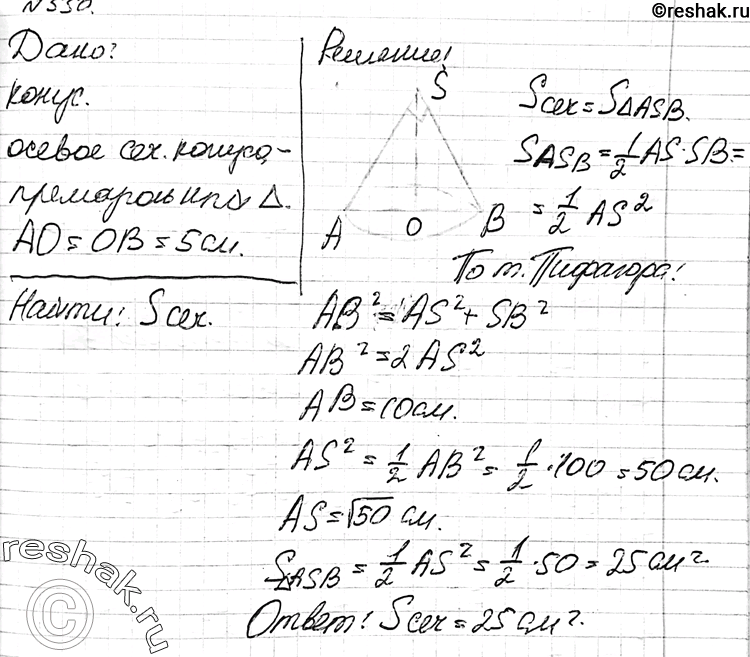 ©reshak.ru
N550.
Дано:
конус.
осевое сеч. конуса -
прямоугольный Δ.
AO = OB = 5 см.
Найти: Sсеч.
Решение:
S
A O B
Sсеч = SΔASB.
SASB = 1/2 AS · SB =
= 1/2 AS²
По т. Пифагора:
AB² = AS² + SB²
AB² = 2AS²
AB = 10 см.
AS² = 1/2 AB² = 1/2 · 100 = 50 см.
AS = √50 см.
SΔASB = 1/2 AS² = 1/2 · 50 = 25 см².
Ответ: Sсеч = 25 см².
reshak.ru
©